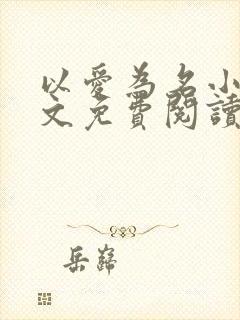 以愛為名小
文免費閱讀
岳巋